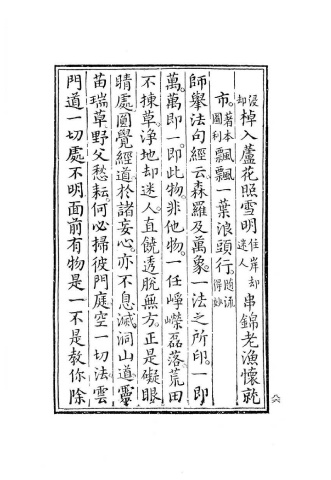 浸却棹入蘆花照雪明住岸却迷人串錦老漁懷就
市。著本圖利飄飄一葉浪頭行。隨流得妙
師舉法句經云。森羅及萬象。一法之所印。一即
萬。萬即一。即此物。非他物。一任崢嶸磊落。荒田
不揀草。淨地却迷人。直饒透脫無方。正是礙眼
晴處。圓覺經道。於諸妄心。亦不息滅。洞山道。靈
苗瑞草。野父愁耘。何必掃彼門庭。空一切法。雲
門道。一切處不明。面前有物是一。不是教你除